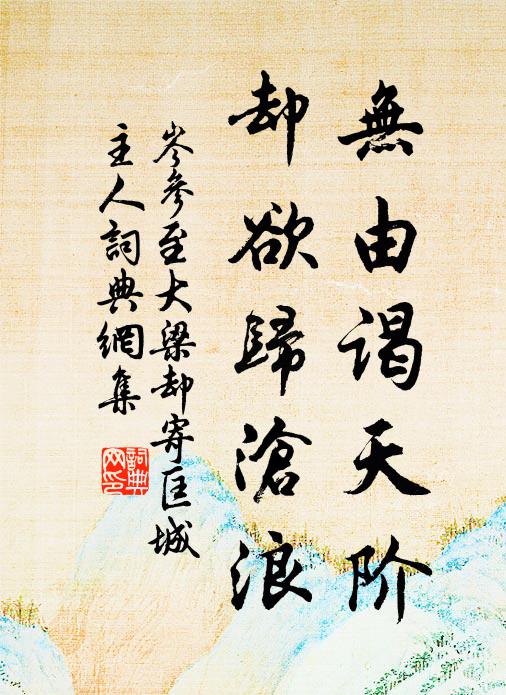 無由谒天阶
却欲歸滄浪
岑參至大梁却寄匡城
主人詞典網集
詞典
网印